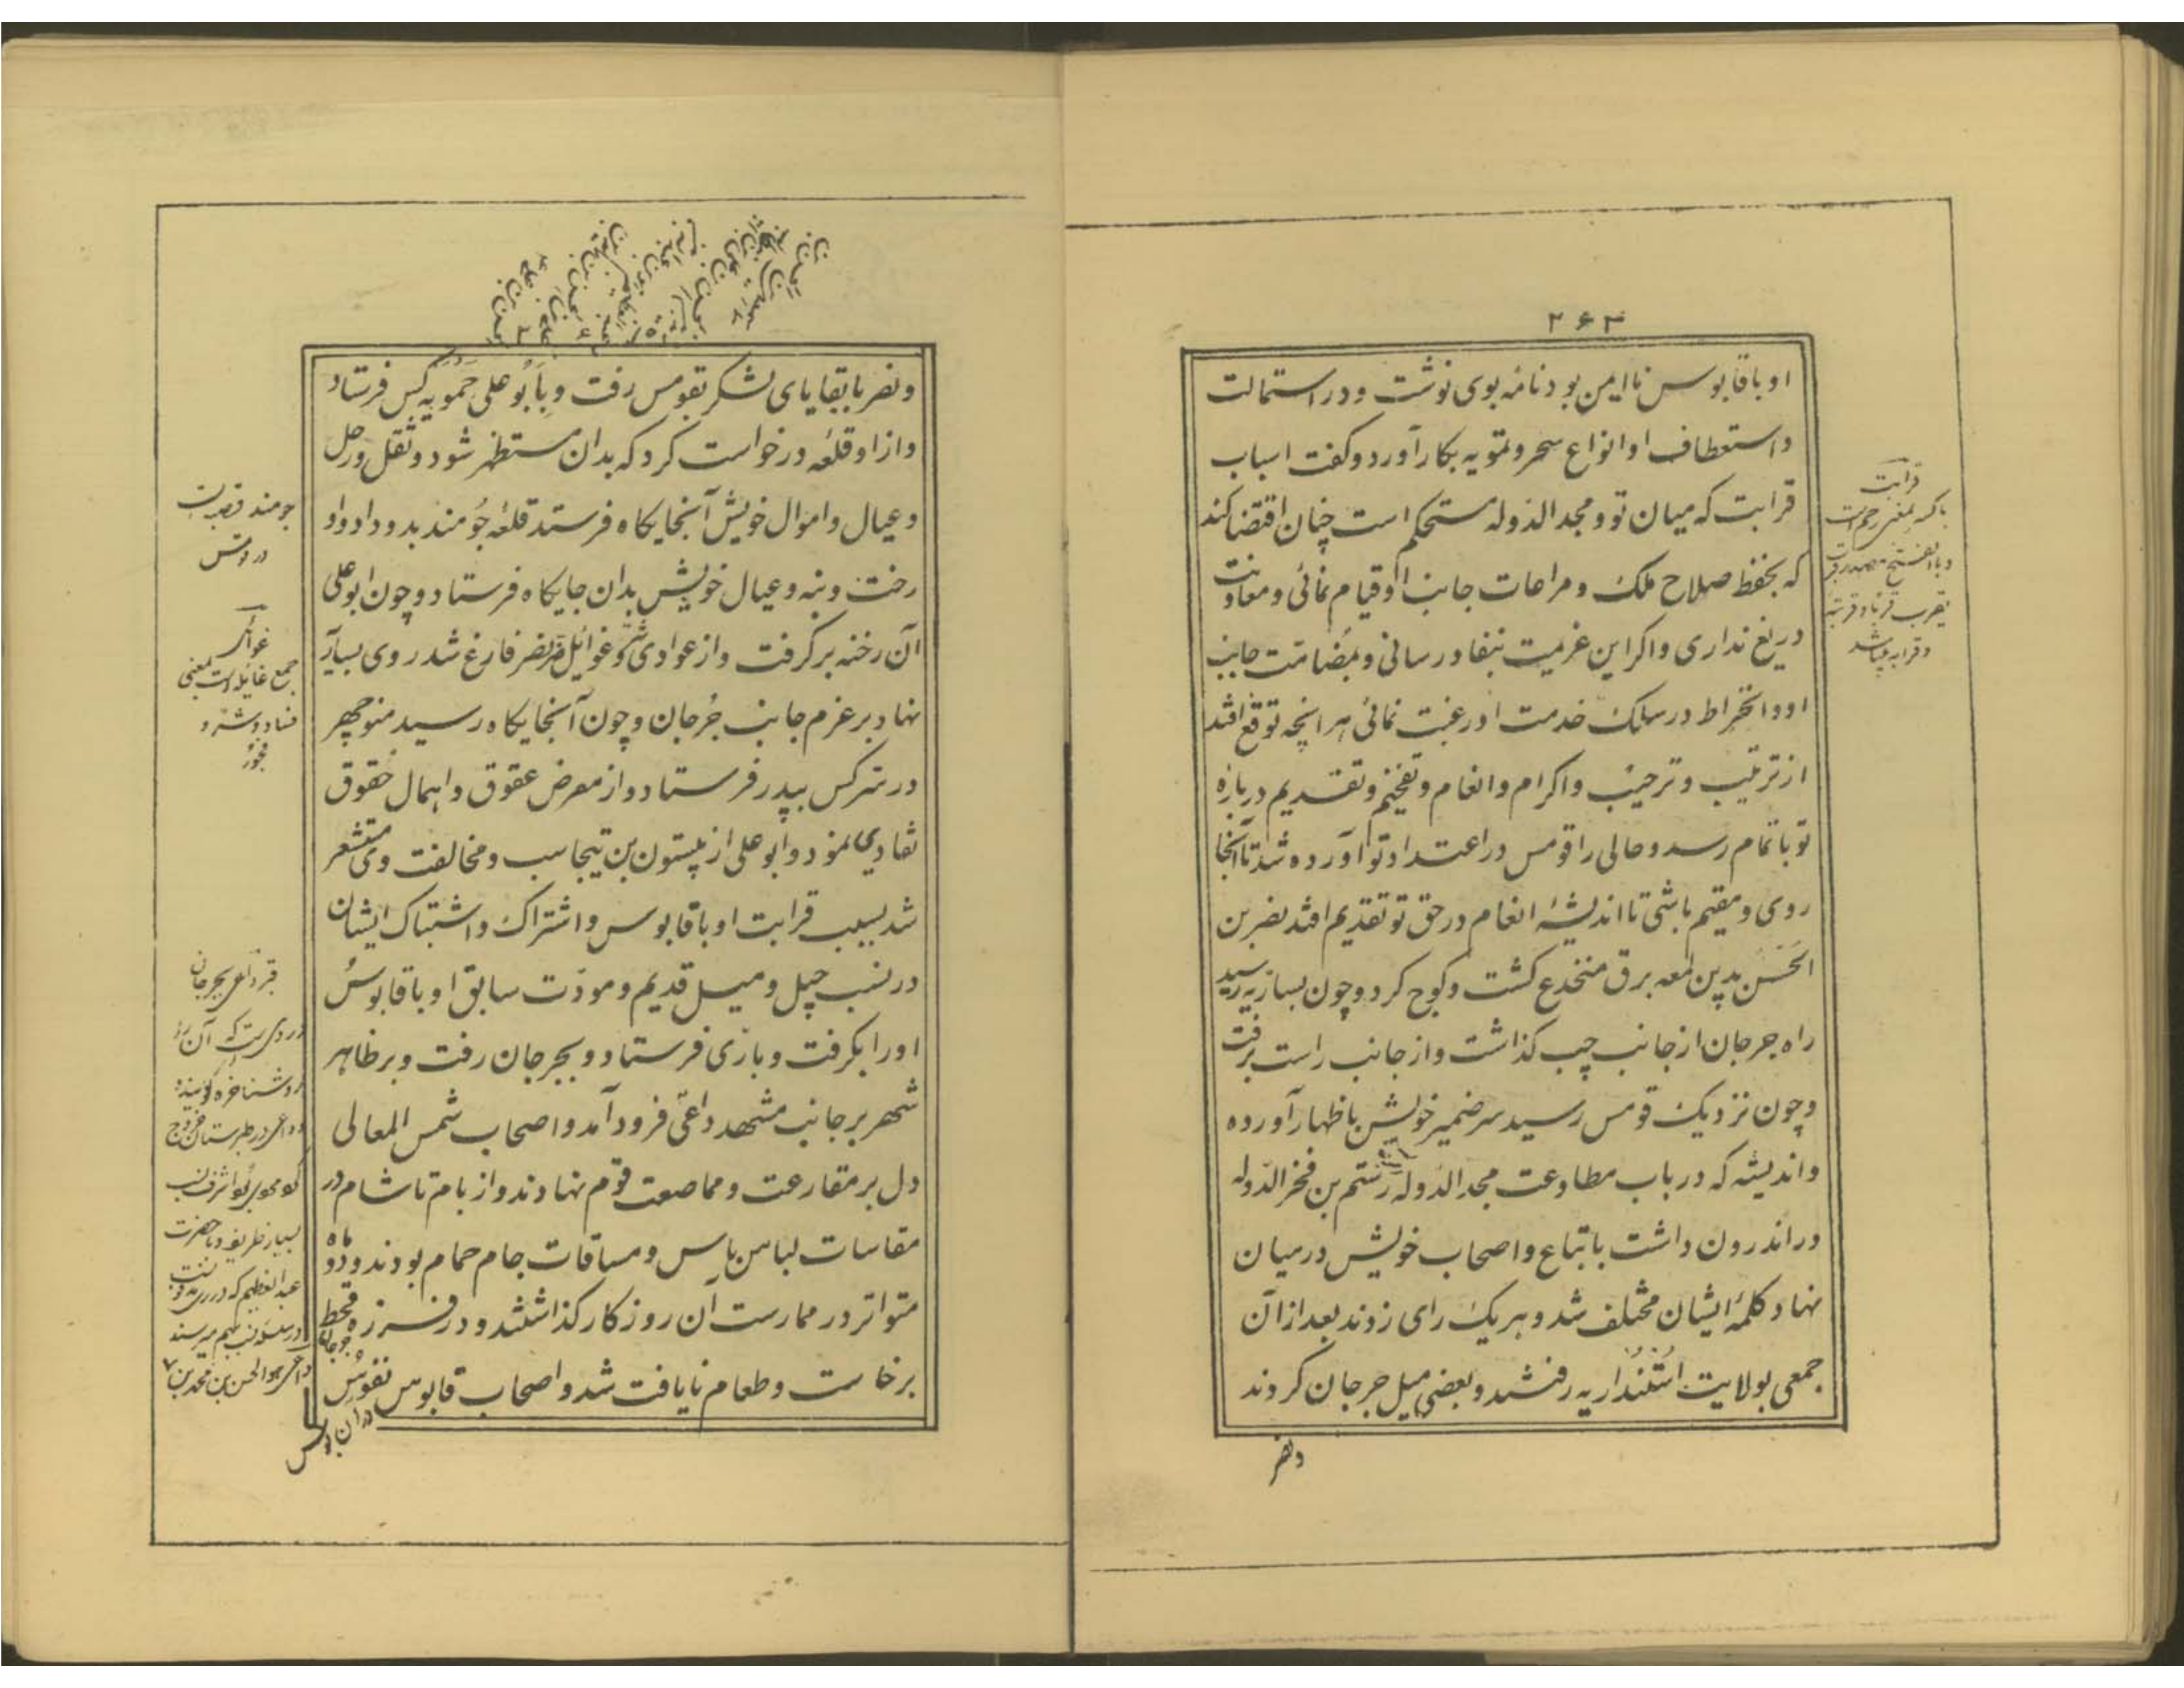 ۲۶۳
او با قابوس نا ایمن بود نامهٔ بوی نوشت و در استمالت
و استعطاف او انواع سحر و تمویه بکار آورد و کفت اسباب
قرابت که میان تو و مجد الدوله مستحکم است چنان اقتضا کند
که بحفظ صلاح ملک و مراعات جانب او قیام نمائی و معاونت
دریغ نداری و اکر این عزیمت بنفاد رسانی و بمضامت جانب
او و انخراط در سلک خدمت او رغبت نمائی هر انچه توقع افتد
از ترتیب و ترحیب و اکرام و انعام و تفخیم و تقدیم دربارهٔ
تو باتمام رسد و حالی را قومس در اعتداد تو آورده شد تا آنجا
روی و مقیم باشی تا اندیشهٔ انعام در حق تو تقدیم افتد نصر بن
الحَسَن بدین لمعه برق منخدع کشت و کوچ کرد و چون بساریه رسید
راه جرجان از جانب چپ کذاشت و از جانب راست برفت
و چون نزدیک قومس رسید سر ضمیر خویش باظهار آورده
و اندیشه که در باب مطاوعت مجد الدوله رستم بن فخر الدوله
در اندرون داشت باتباع و اصحاب خویش در میان
نهاد کلمهٔ ایشان مختلف شد و هر یک رای زدند بعد از آن
جمعی بولایت اُستُنداریه رفتند و بعضی میل جرجان کردند
ونصر
قرابت
با کسر بمعنی رحم است
و با الفتح مصدر قرب
یقرب قربا و قربة
و قرابه میباشد
و نصر با بقایای لشکر بقومس رفت و بَابُو علی حَمُّویه کس فرستاد
و از او قلعه درخواست کرد که بدان مستظهر شود و ثقل و رحل
و عیال و اموال خویش آنجایکاه فرستد قلعه جُومند بدو داد و او
رخت و بنه و عیال خویش بدان جایکاه فرستاد و چون ابو علی
آن رخنه برکرفت و از عوادی شرّ و غوائل ضرّ نصر فارغ شد روی بساریه
نهاد بر عزم جانب جُرجان و چون آنجایکاه رسید منوچهر
در سرّ کس بپدر فرستاد و از معرض عقوق و اهمال حقوق
تفادی نمود و ابو علی از بیستون بن تیجاسب و مخالفت وی مستشعر
شد بسبب قرابت او با قابوس و اشتراک و اشتباک ایشان
در نسب جیل و میل قدیم و مودّت سابق او با قابوسُ
او را بکرفت و بازی فرستاد و بجرجان رفت و بر ظاهر
شهر بر جانب مشهد داعی فرود آمد و اصحاب شمس المعالی
دل بر مقارعت و مماصعت قوم نهادند و از بام تا شام در
مقاسات لباس باس و مساقات جام حمام بودند و دو ماه
متواتر در ممارست آن روزکار کذاشتند و در فرزه قحط
برخاست و طعام نایافت شد و اصحاب قابوس نفوس
جومند قصبه ایست
در قومس
غوائل
جمع غائله است بمعنی
فساد و شر و
قبر داعی بجرجان
عبد العظیم که در ری
داعی هو الحسن بن محمد بن